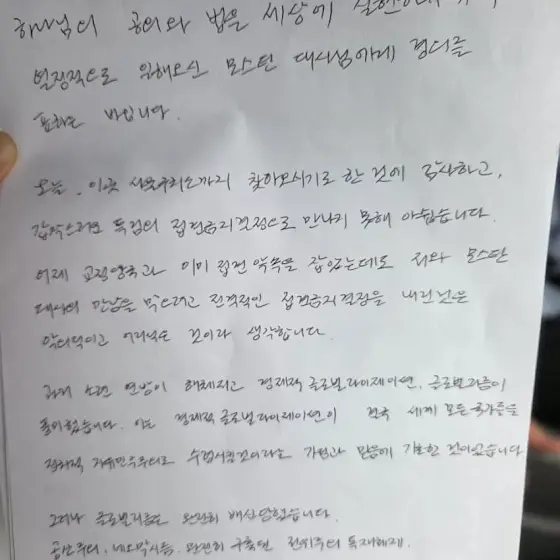 하나님의 공의와 법을 세상에
열정적으로 일해오신 모스탄 대사님에게 경의를
표하는 바입니다.
오늘, 이곳 서울구치소까지 찾아오시기로 한 것에 감사하고,
갑작스러운 특검의 접견금지결정으로 만나지 못해 아쉽습니다.
어제 교정당국과 이미 접견 약속을 잡았는데도 저와 모스탄
대사의 만남을 막으려고 전격적인 접견금지 결정을 내린 것은
악의적이고 어리석은 것이라 생각합니다.
과거 소련 연방이 해체되고 경제적 글로벌라이제이션, 글로벌리즘이
풍미했습니다. 이는 경제적 글로벌라이제이션이 전세계 모든 국가들을
자유민주주의로 수렴시킬 것이라는 가정과 믿음에 기초한 것이었습니다
그러나 글로벌리즘은 완전히 배신당했습니다.
공산주의, 네오막시즘, 완전히 구축된 전체주의 독재체제,